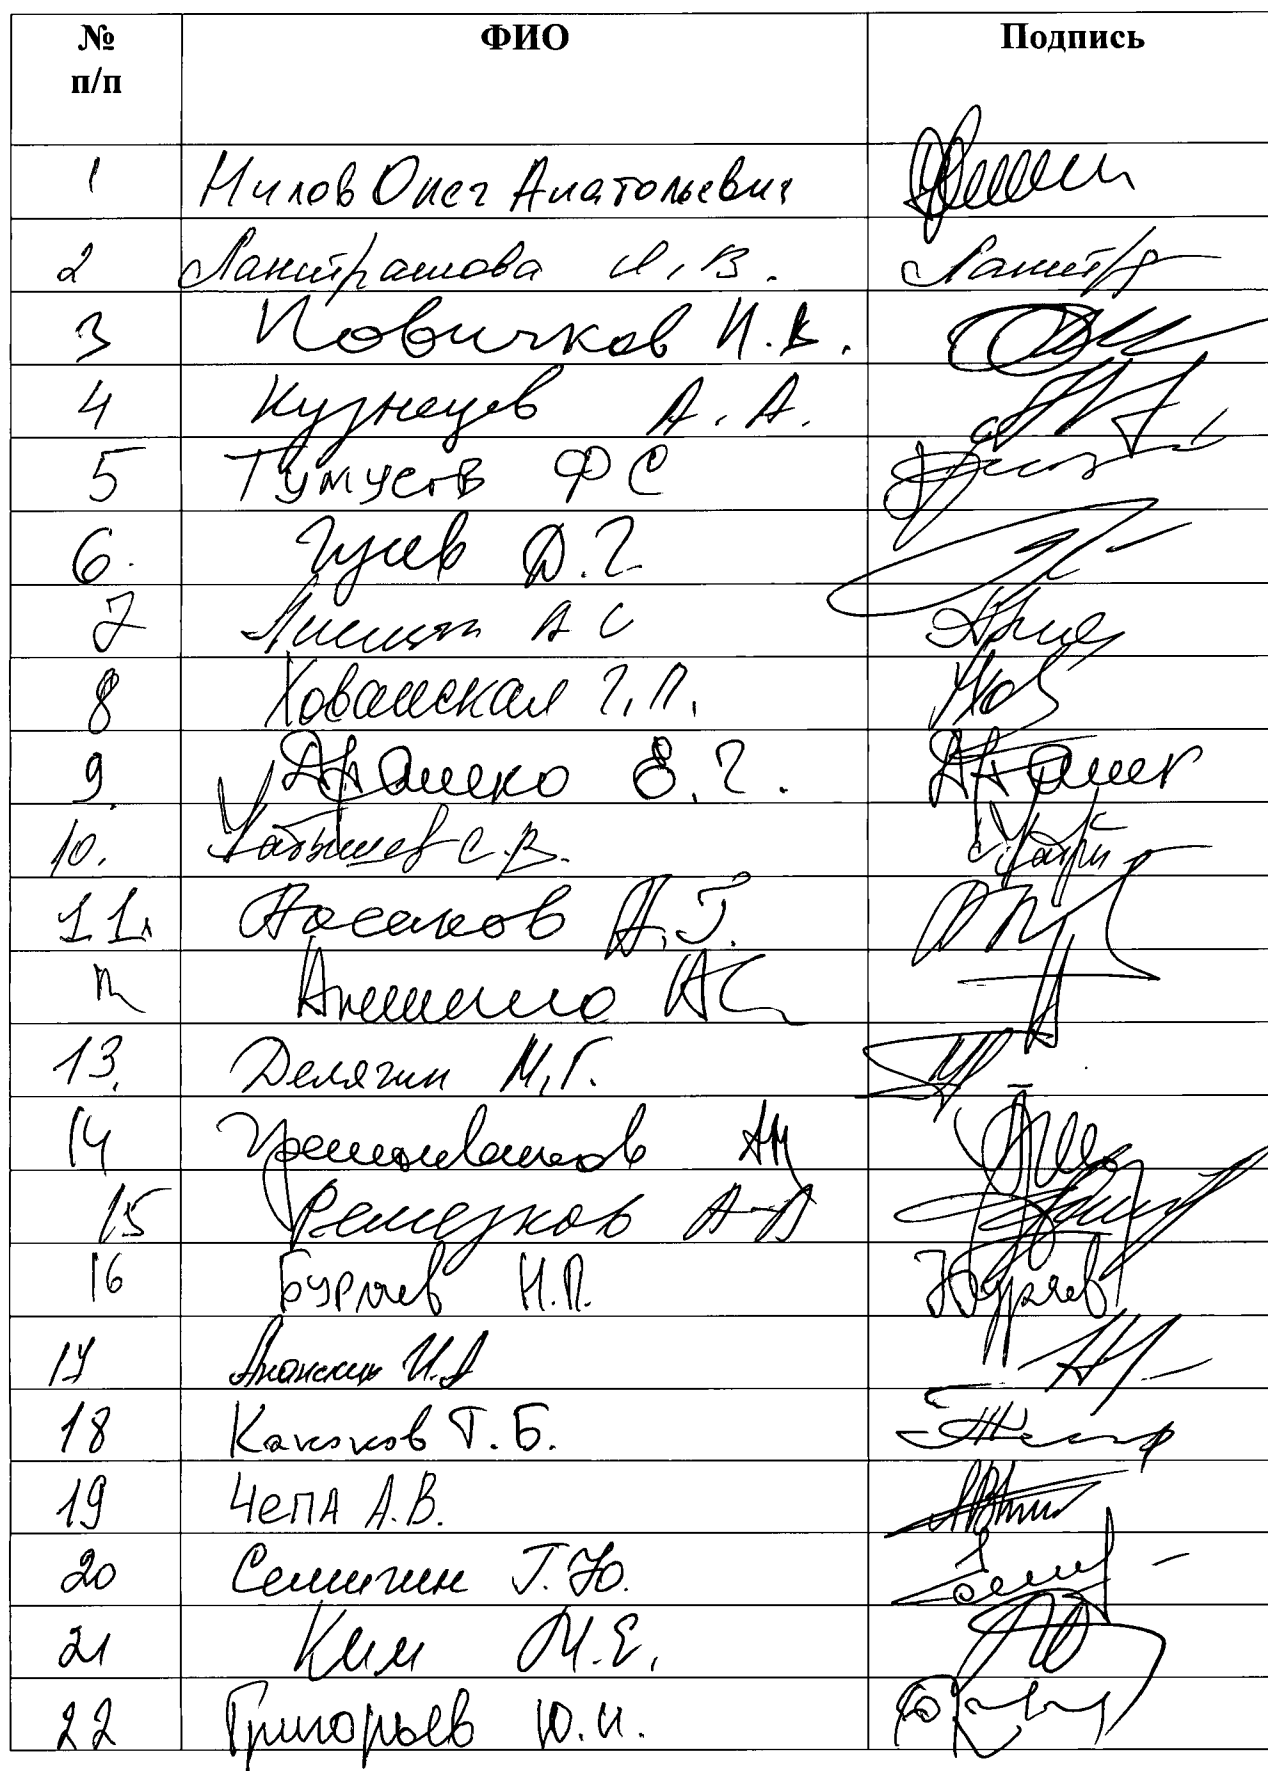 № п/п ФИО Подпись
1 Нилов Олег Анатольевич
2 Лантратова Я.В.
3 Новичков Н.В.
4 Кузнецов А.А.
5 Тумусов ФС
6. Гусев Д.Г.
7 Лисицын А С
8 Хованская Г.П.
9. Драпеко Е.Г.
10. Кабышев С.В.
11. Аксаков А.Г.
12
13. Делягин М.Г.
14 Грешневиков АН
15 Ремезков А А
16 Бурляев Н.П.
17 Ананских И.А
18 Канокков Т.Б.
19 Чепа А.В.
20 Семигин Г.Ю.
21 Ким М.Е.
22 Григорьев Ю.И.